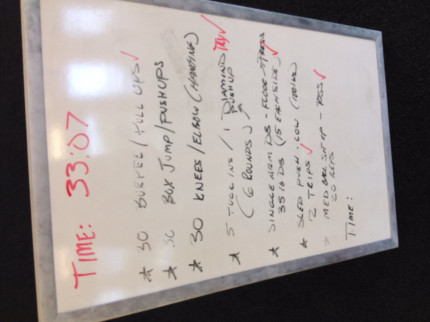 TIME: 33:07
* 30 BURPEE/PULL UPS ✓
* 30 BOX JUMP/PUSHUPS
* 30 KNEES/ELBOW (HANGING)
* 5 TUCK INS/1 DIAMOND PUSHUP
(6 ROUNDS)
* SINGLE ARM DB - FLOOR PRESS ✓
35 lb DB (15 EA SIDE)
* SLED PUSH - LOW
2 TRIPS ✓
MED BALL SIT UP - TOSS ✓
20 REPS
TIME: